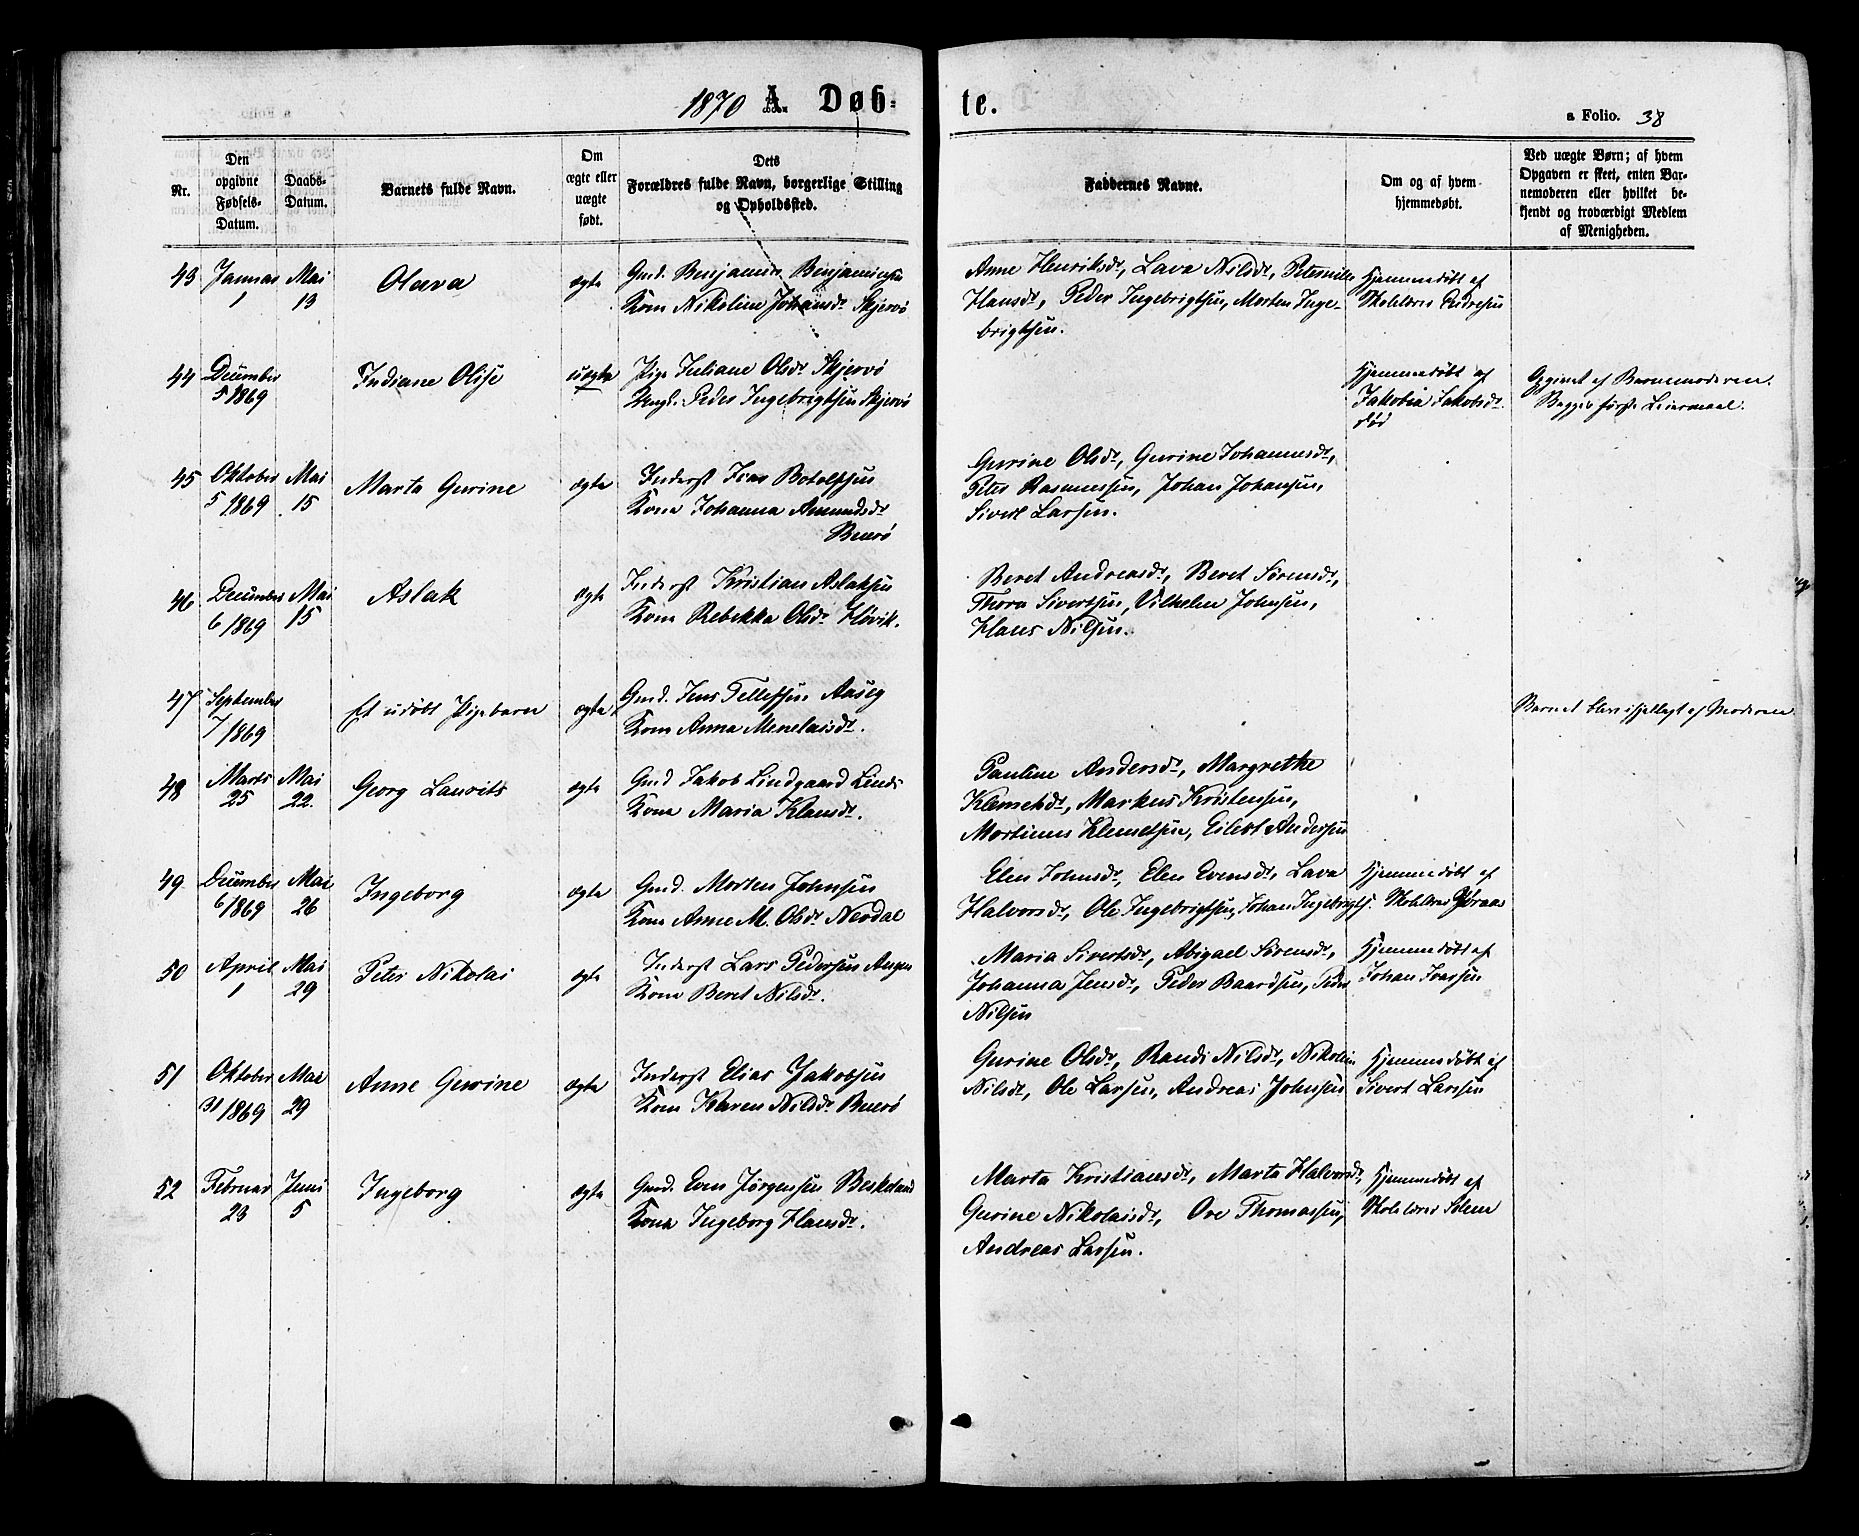 1870 A. Døb-
te.
a Folio. 38
Nr.
Den
opgivne
Fødsels-
Datum.
Daabs-
Datum.
Barnets fulde Navn.
Om
ægte eller
uægte
født.
Dets
Forældres fulde Navn, borgerlige Stilling
og Opholdssted.
Faddernes Navne.
Om og af hvem
hjemmedøbt.
Ved uægte Børn; af hvem
Opgaven er skeet, enten Bar-
nemoderen eller hvilket be-
kjendt og troværdigt Medlem
af Menigheden.
43 Januar Mai Olava ægte Gmd. Benjamin Benjaminsen
1 13 Kone Nikoline Johansdr Skjervø
Anne Henriksdr, Lava Nilsdr, Peternille
Hansdr, Peder Ingebrigtsen, Morten Inge-
brigtsen.
Hjemmedøbt af
Skolelærer Andresen
44 December Indiane Olise uægte Pige Juliane Olsdr Skjervø
5 1869 Ungk. Peder Ingebrigtsen Skjervø
Hjemmedøbt af
Jakobia Jakobsdr.
død
Opgivet af Barnemoderen.
Begges første Leiermaal.
45 Oktober Mai Marta Gurine ægte Inderst Ivar Botolfsen
5 1869 15 Kone Johanna Amundsdr
Buerø
Gurine Olsdr, Gurine Johannesdr,
Peter Rasmussen, Johan Johansen,
Sivert Larsen.
46 December Mai Aslak ægte Inderst Kristian Aslaksen
6 1869 15 Kone Rebekka Olsdr Høvik.
Beret Andreasdr, Beret Sørensdr,
Thora Sivertsen, Vilhelm Johnsen,
Hans Nilsen.
47 September Et udøbt Pigebarn ægte Gmd. Jens Tellefsen Aaseg
7 1869 Kone Anna Menelaisdr.
Barnet blev ihjellagt af Moderen.
48 Marts Mai Georg Lauvits ægte Gmd Jakob Lindgaard Linds
25 22. Kone Maria Klausdr.
Pauline Andersdr, Margrethe
Klemetsdr, Markus Kristensen,
Mortinus Klemetsen, Eilert Andersen
49 December Mai Ingeborg ægte Gmd. Morten Johnsen
6 1869 26 Kone Anne M. Olsdr Nevdal
Elen Johnsdr, Elen Evensdr, Lava
Halvorsdr, Ole Ingebrigtsen, Johan Ingebrigts.
Hjemmedøbt af
Skolelærer
50 April Mai Peter Nikolai ægte Inderst Lars Pedersen
1 29 Kone Beret Nilsdr.
Maria Sivertsdr, Abigael Sørensdr,
Johanna Jensdr, Peder Baardsen, Peder
Nilsen
Hjemmedøbt af
Johan Ivarsen
51 Oktober Mai Anne Gurine ægte Inderst Elias Jakobsen
31 1869 29 Kone Karen Nilsdr Buerø
Gurine Olsdr, Randi Nilsdr, Nikoline
Nilsdr, Ole Larsen, Andreas Johnsen
Hjemmedøbt af
Sivert Larsen
52 Februar Juni Ingeborg ægte Gmd. Even Jørgensen Beskeland
23 5 Kone Ingeborg Hansdr.
Marta Kristiansdr, Marta Halvorsdr,
Gurine Nikolaisdr, Ove Thomassen,
Andreas Larsen.
Hjemmedøbt af
Skolelærer Solem